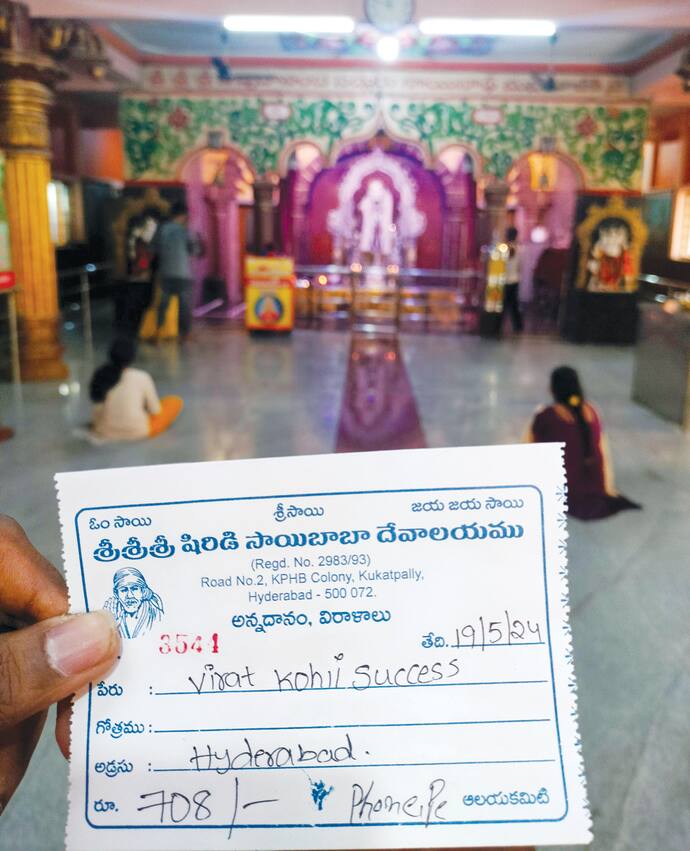 ఓం సాయి శ్రీసాయి జయ జయ సాయి
శ్రీశ్రీశ్రీ షిరిడి సాయిబాబా దేవాలయము
(Regd. No. 2983/93)
Road No.2, KPHB Colony, Kukatpally,
Hyderabad - 500 072.
అన్నదానం, విరాళాలు
3541 తేది. 19/5/24
పేరు : Virat Kohli Success
గోత్రము :
అడ్రసు : Hyderabad.
రూ. 708/- PhonePe ఆలయకమిటి